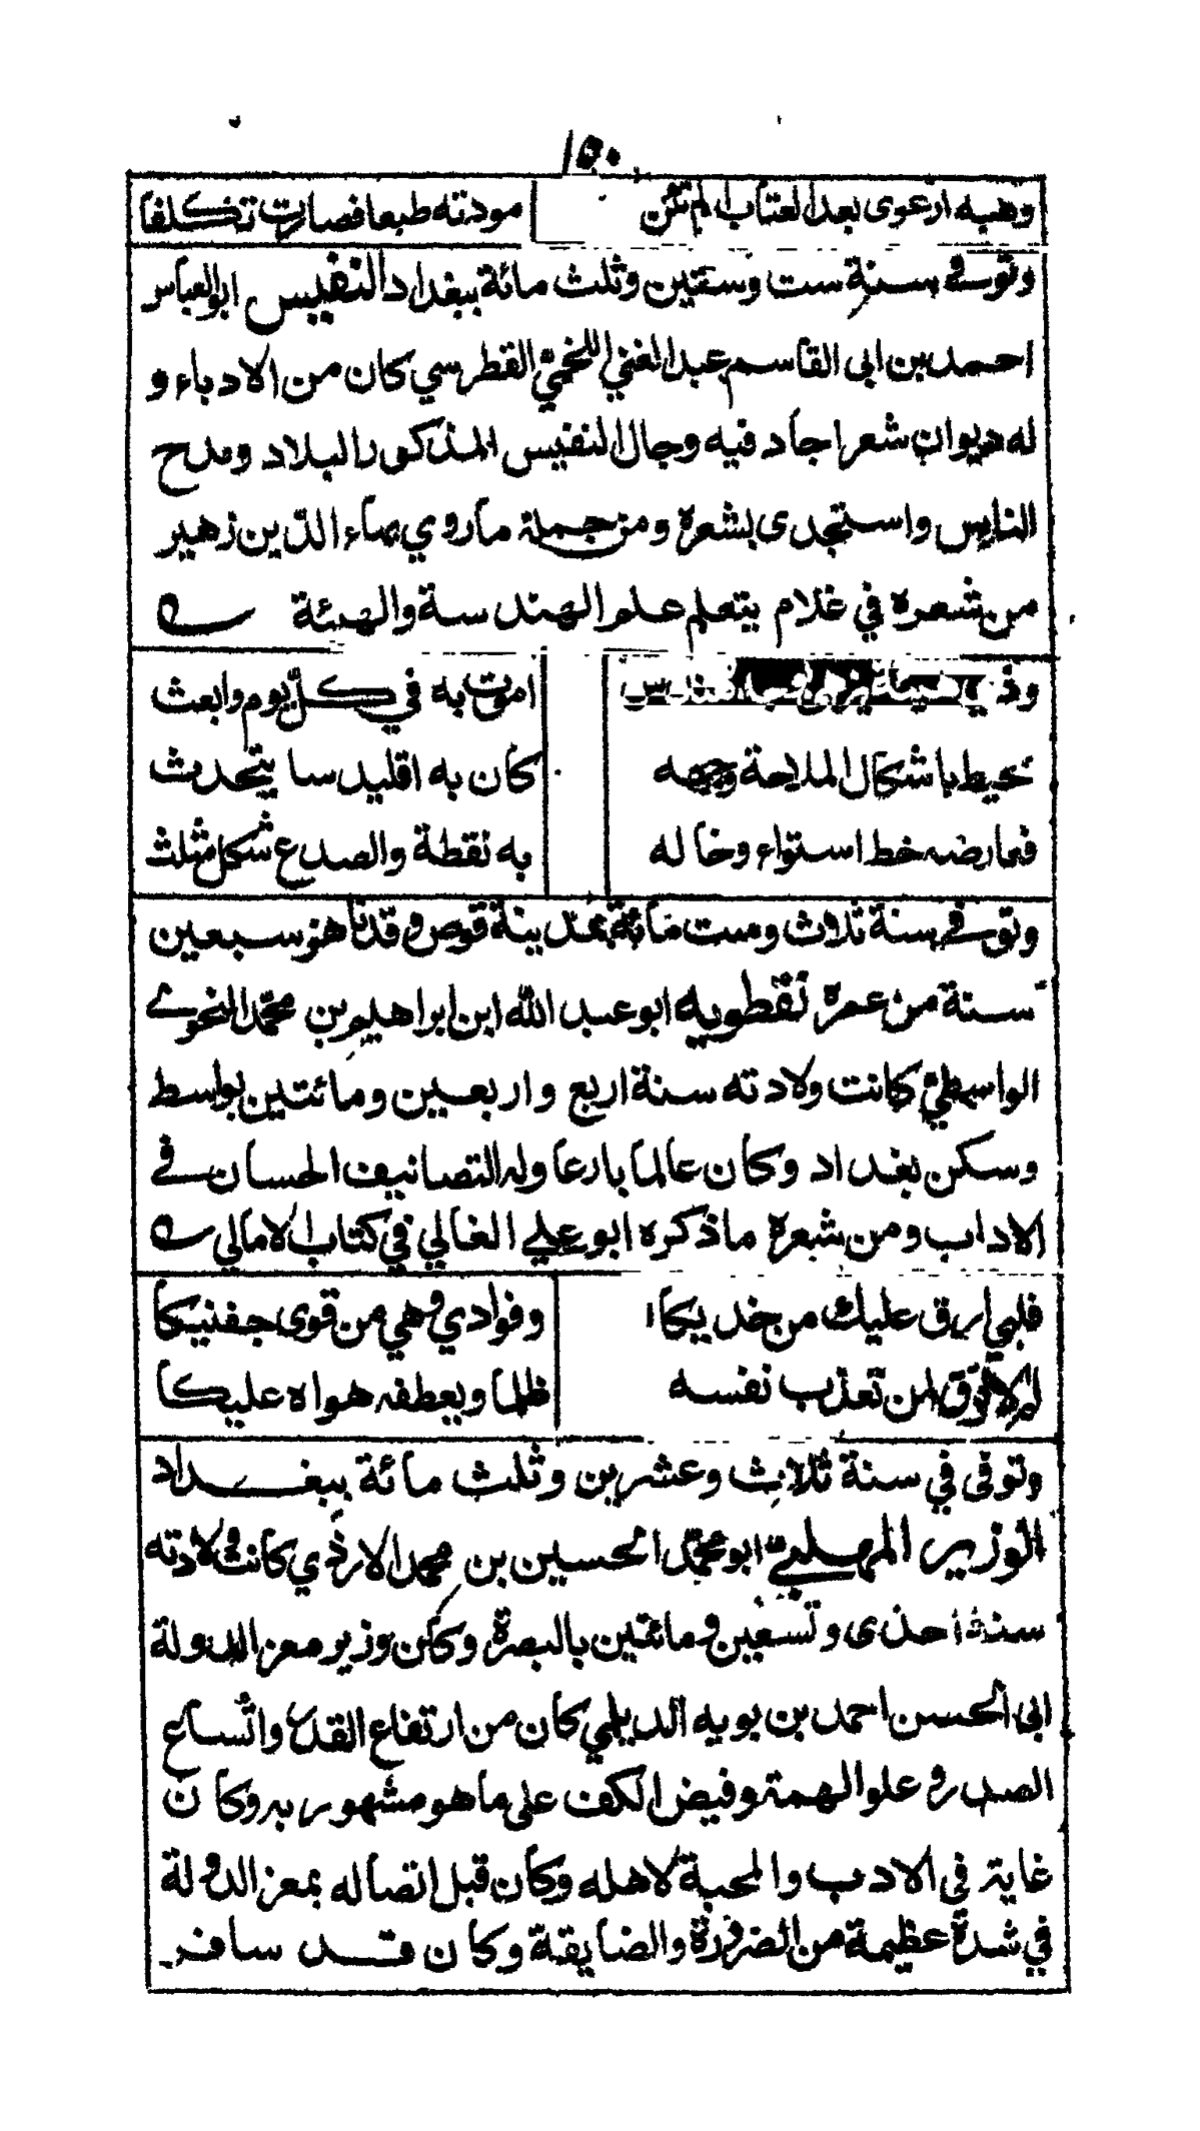 ١٥٠
وهبه ارعوى بعد العتاب الم تكن مودته طبعا فصارت تكلفا
وتوفي سنة ست وستين وثلث مائة ببغداد النفيس ابو العباس
احمد بن ابى القاسم عبد الغني اللخميّ القطرسي كان من الادباء و
له ديوان شعر اجاد فيه وجال النفيس المذكور البلاد ومدح
الناس واستجدى بشعره ومن جملة ما روي بهاء الدّين زهير
من شعره في غلام يتعلم علم الهندسة والهيئة
وذي اموت به في كلّ يوم وابعث
محيط باشكال الملاحة وجهه كان به اقليدسا يتحدث
فعارضه خط استواء وخاله به نقطة والصدع شكل مثلث
وتوفي سنة ثلاث وست مائة بمدينة قوص وقد ناهز سبعين
سنة من عمره نفطويه ابو عبد الله ابن ابراهيم بن محمّد النحوي
الواسطيّ كانت ولادته سنة اربع واربعين ومائتين بواسط
وسكن بغداد وكان عالما بارعا وله التصانيف الحسان في
الاداب ومن شعره ما ذكره ابو علي الغالي في كتاب الامالي
قلبي ارق عليك من خديكا وفوادي وهي من قوى جفنيكا
لم لا ترق لمن تعذب نفسه ظلما ويعطفه هواه عليكا
وتوفى في سنة ثلاث وعشرين وثلث مائة ببغداد
الوزير المهلبيّ ابو محمّد الحسين بن محمد الازدي كانت ولادته
سنة احدى وتسعين ومائتين بالبصرة وكان وزير معز الدولة
ابى الحسن احمد بن بويه الديلمي كان من ارتفاع القدر واتّساع
الصدر وعلو الهمة وفيض الكف على ما هو مشهور به وكان
غاية في الادب والمحبة لاهله وكان قبل اتصاله بمعز الدولة
في شدة عظيمة من الضرورة والضايقة وكان قد سافر